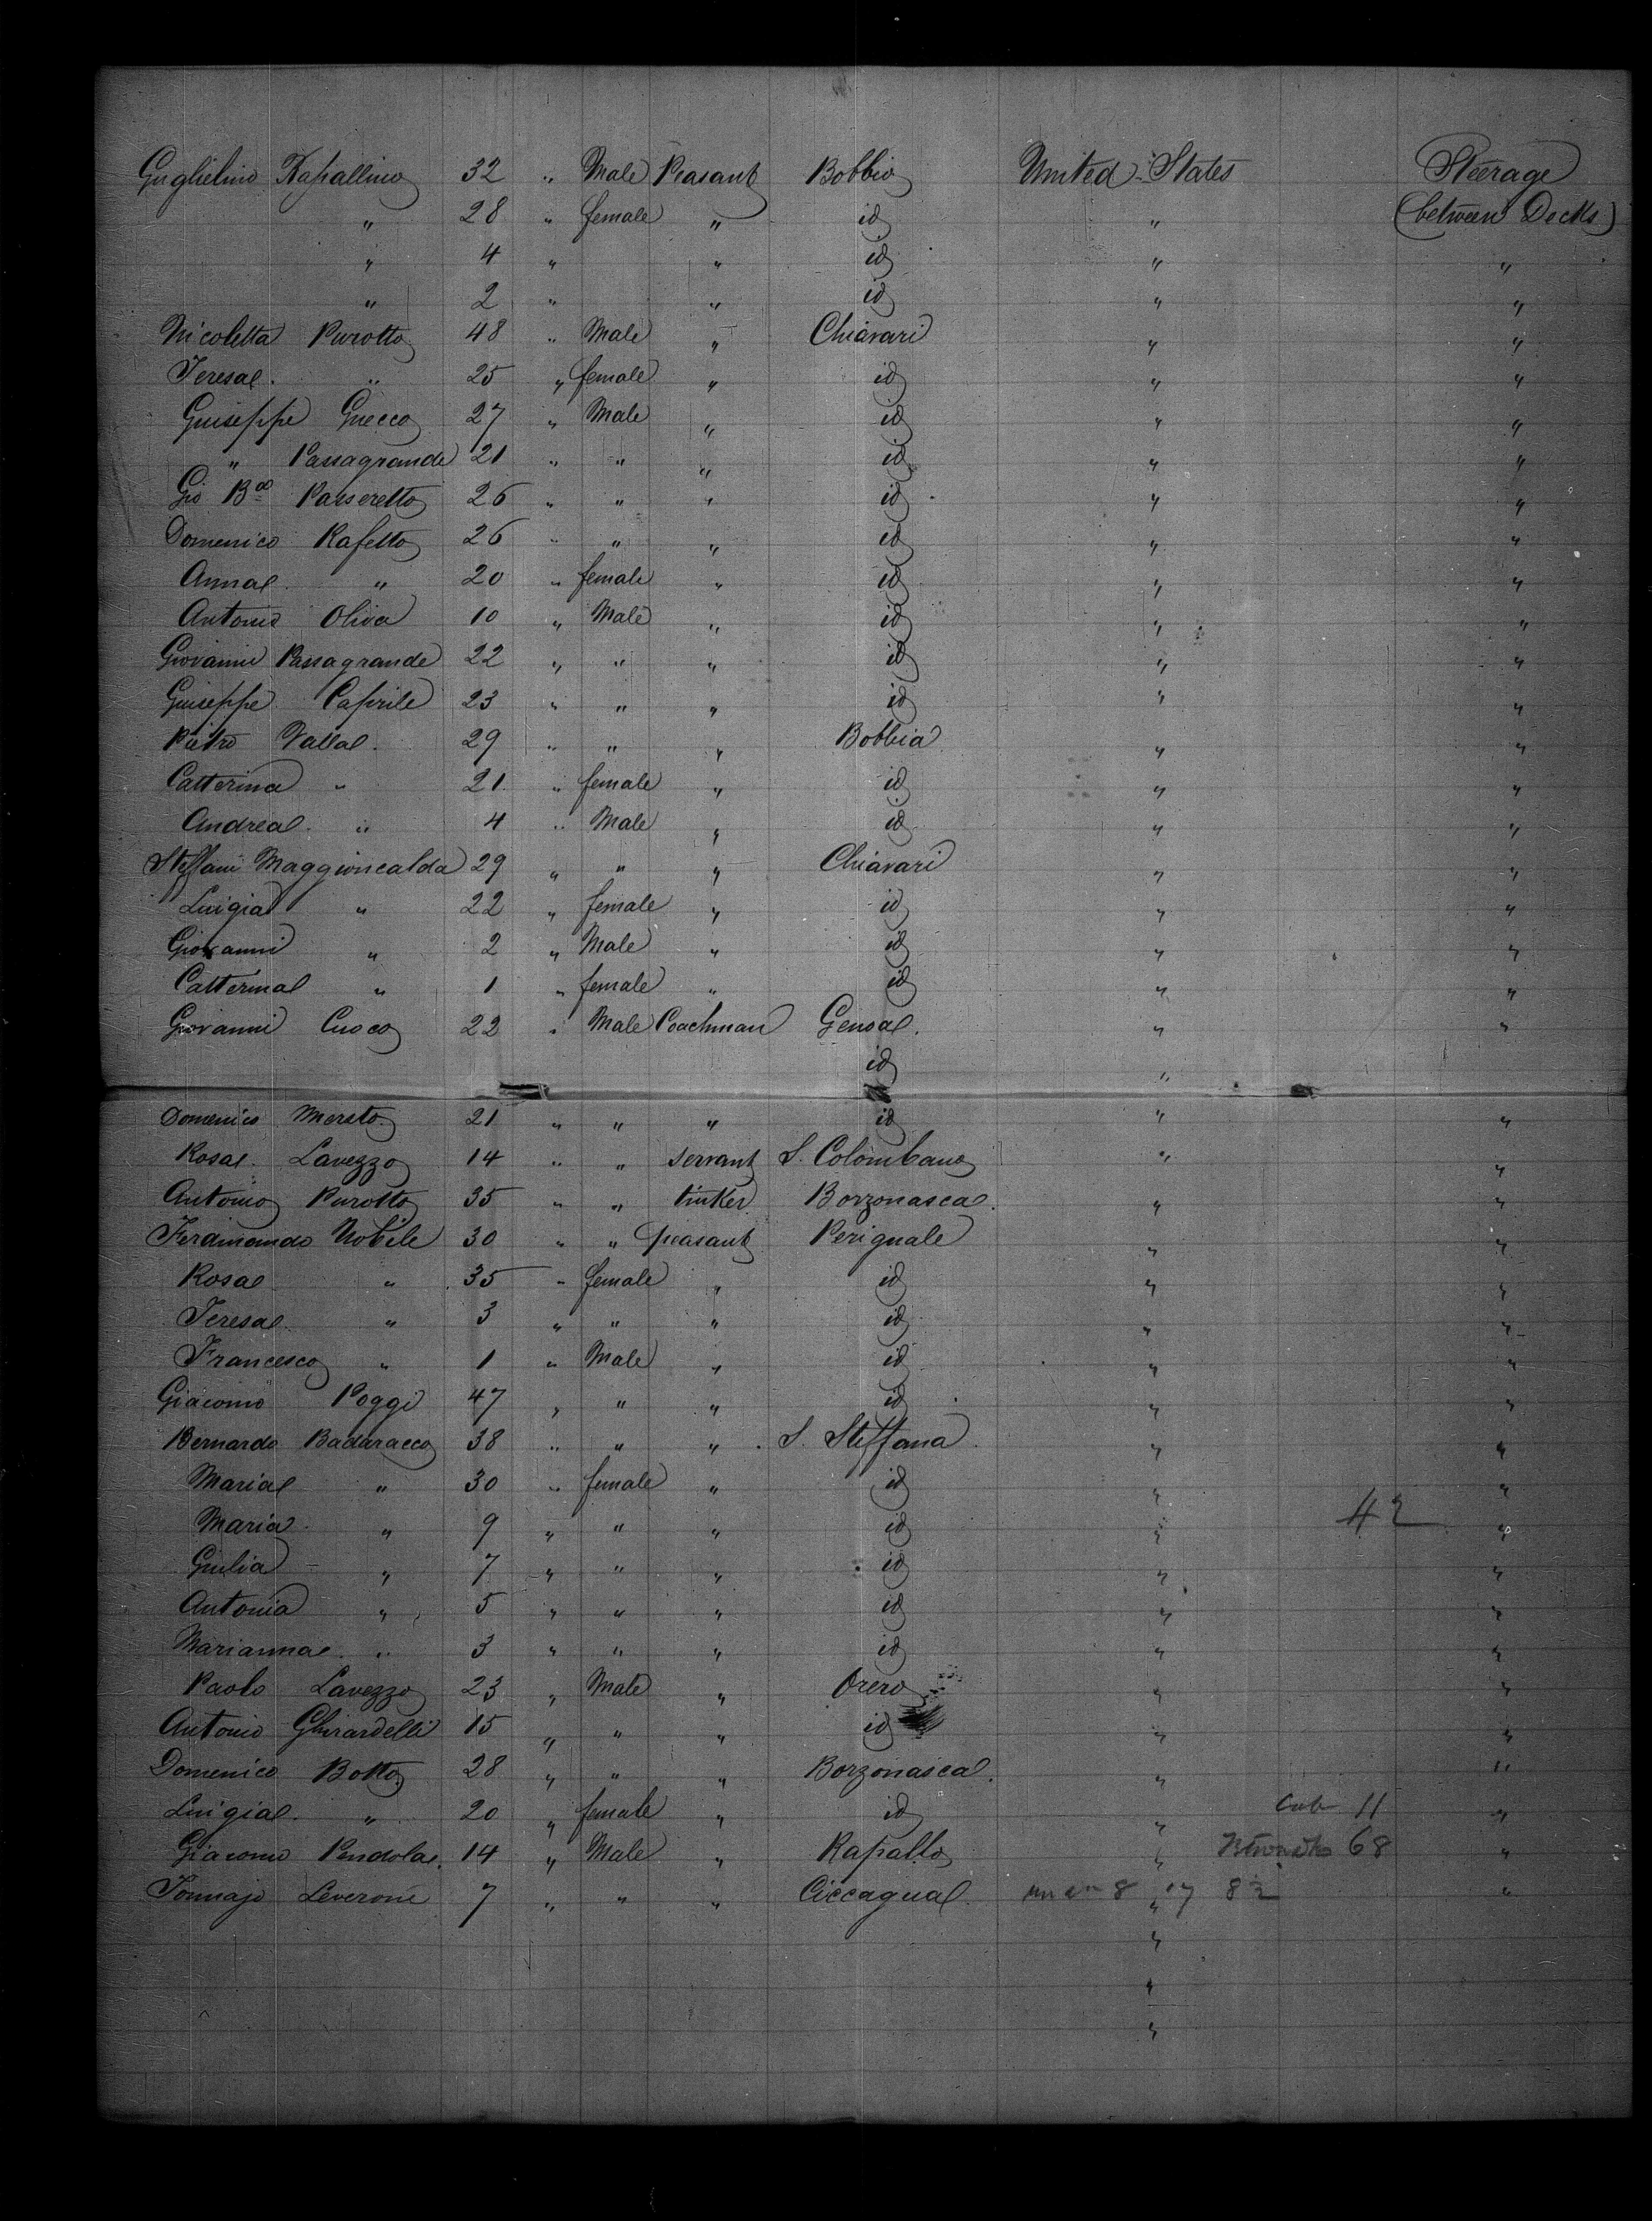 Guglielmo Rapallino 32 " Male Peasant Bobbio United States Steerage
" 28 " female " id " (between Decks)
" 4 " " id " "
" 2 " " id " "
Nicoletta Purotto 48 " Male " Chiavari " "
Teresa " 25 " female " id " "
Guiseppe Guecco 27 " Male " id " "
" Passagrande 21 " " " id " "
Gio Bta Passeretto 26 " " " id " "
Domenico Rafetto 26 " " " id " "
Anna " 20 " female " id " "
Antonio Oliva 10 " Male " id " "
Giovanni Passagrande 22 " " " id " "
Guiseppe Caprile 23 " " " id " "
Pietro Valla 29 " " " Bobbia " "
Catterina " 21 " female " id " "
Andrea " 4 " Male " id " "
Steffani Maggioncalda 29 " " " Chiavari " "
Luigia " 22 " female " id " "
Giovanni " 2 " Male " id " "
Catterina " 1 " female " id " "
Giovanni Cuoco 22 " Male Coachman Genoa " "
id "
Domenico Mersto 21 " " " id " "
Rosa Lavezzo 14 " " servant S. Colombano " "
Antonio Purotto 35 " " tinker Borzonasca " "
Ferdinando Nobile 30 " " peasant Perignale " "
Rosa " 35 " female " id " "
Teresa " 3 " " " id " "
Francesco " 1 " Male " id " "
Giacomo Poggi 47 " " " id " "
Bernardo Badaracco 38 " " " S. Steffana " "
Maria " 30 " female " id " "
Maria " 9 " " " id " 42 "
Giulia " 7 " " " id " "
Antonia " 5 " " " id " "
Marianna " 3 " " " id " "
Paolo Lavezzo 23 " Male " Orero " "
Antonio Ghirardelli 15 " " " id " "
Domenico Botto 28 " " " Borzonasca " "
Luigia " 20 " female " id " 11 "
Giacomo Pendola 14 " Male " Rapallo " 68 "
Tommajo Leverone 7 " " " Ciccagna 8 " 82 "
"
"
"